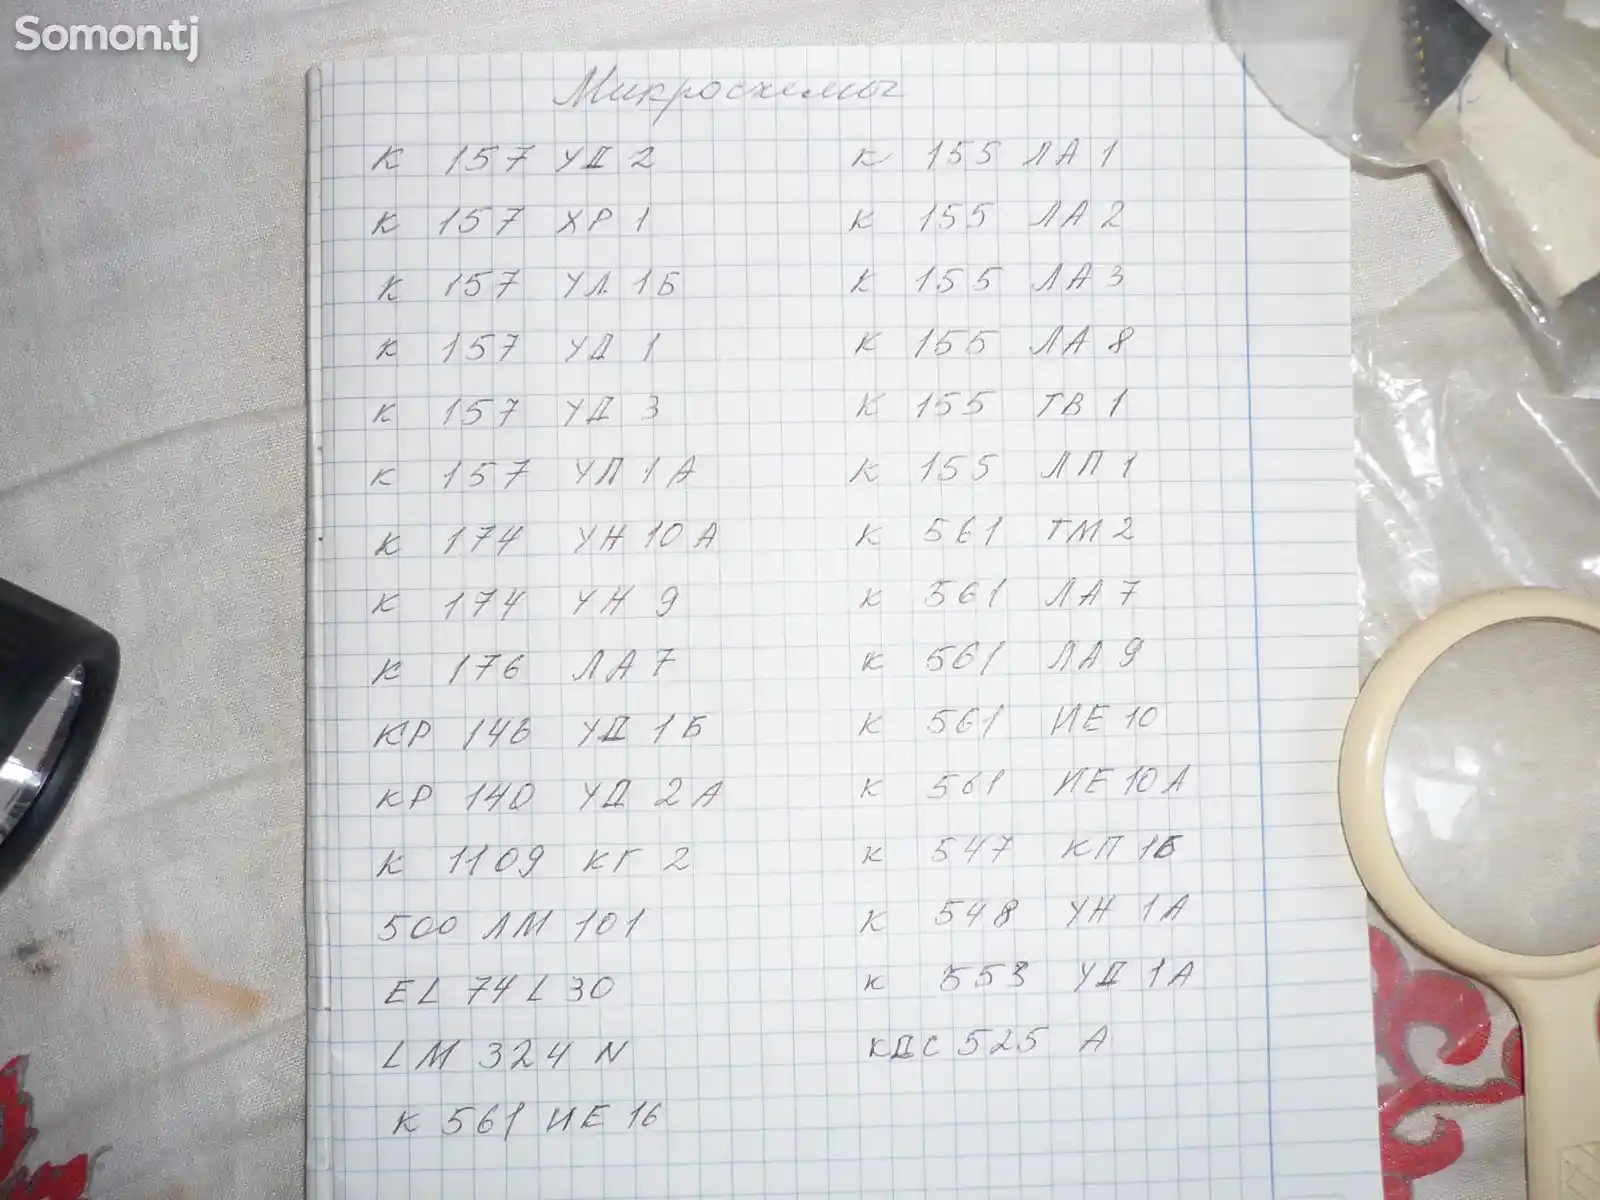 Somon.tj
Микросхемы
К 157 УД 2
К 157 ХР 1
К 157 УЛ 1Б
К 157 УД 1
К 157 УД 3
К 157 УЛ 1А
К 174 УН 10 А
К 174 УН 9
К 176 ЛА 7
КР 146 УД 1 Б
КР 140 УД 2 А
К 1109 КГ 2
500 ЛМ 101
EL 74 L 30
LM 324 N
К 561 ИЕ 16
К 155 ЛА 1
К 155 ЛА 2
К 155 ЛА 3
К 155 ЛА 8
К 155 ТВ 1
К 155 ЛП 1
К 561 ТМ 2
К 561 ЛА 7
К 561 ЛА 9
К 561 ИЕ 10
К 561 ИЕ 10А
К 547 КП 1Б
К 548 УН 1А
К 553 УД 1А
КДС 525 А